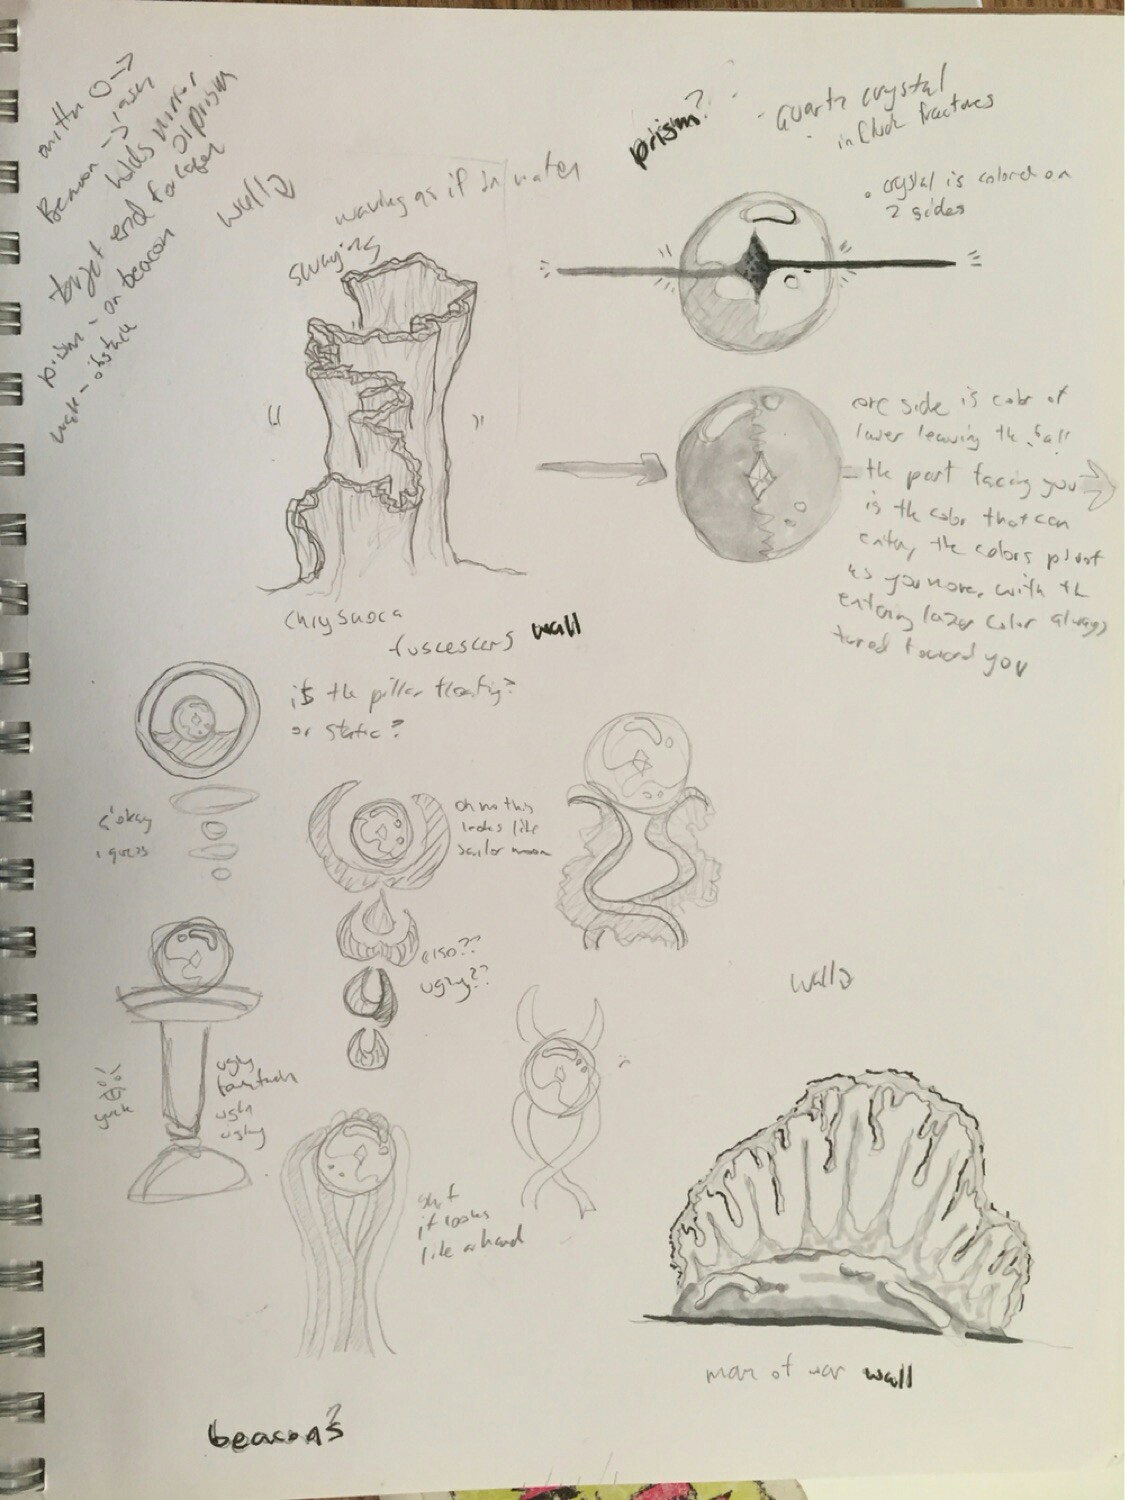 Beacon -> laser
holds mirror
or prism
target end for laser
prism - on beacon
wall - obstacle
wall?
waving as if in water
swaying
prism?
- quartz crystal
include fractures
. crystal is colored on
2 sides
one side is color of
lazer leaving the ball
the part facing you
is the color that can
enter, the colors pivot
as you move, with the
entering lazer color always
turned toward you
chrysaora
fuscescens wall
is the pillar floating?
or static?
s'okay
i guess
oh no this
looks like
sailor moon
also??
ugly??
yuck
ugly
fountain
ugly
ugly
:(
shit
it looks
like a hand
wall?
man of war wall
beacons?